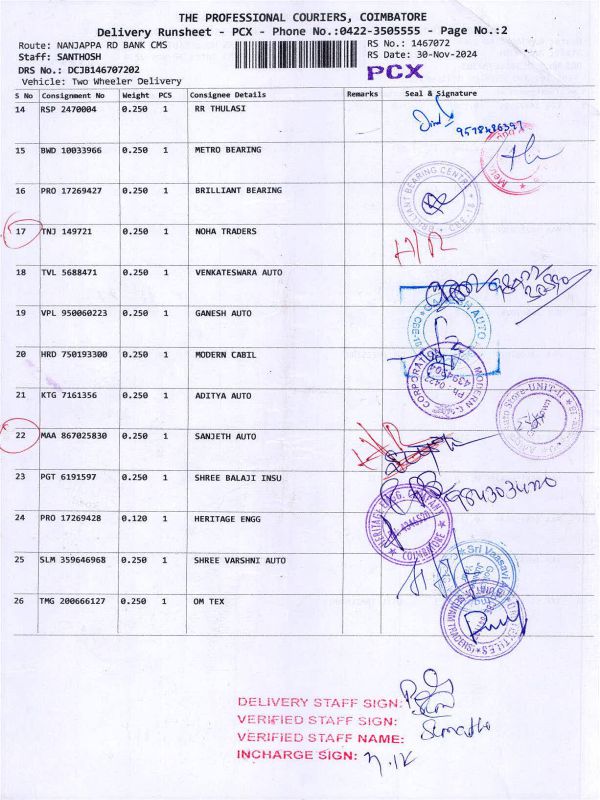 THE PROFESSIONAL COURIERS, COIMBATORE
Delivery Runsheet - PCX - Phone No.:0422-3505555 - Page No.:2
Route: NANJAPPA RD BANK CMS
RS No.: 1467072
Staff: SANTHOSH
RS Date: 30-Nov-2024
DRS No.: DCJB146707202
PCX
Vehicle: Two Wheeler Delivery
S No Consignment No Weight PCS Consignee Details Remarks Seal & Signature
14 RSP 2470004 0.250 1 RR THULASI
15 BWD 10033966 0.250 1 METRO BEARING
16 PRO 17269427 0.250 1 BRILLIANT BEARING
BRILLIANT BEARING CENTRE
17 TNJ 149721 0.250 1 NOHA TRADERS
18 TVL 5688471 0.250 1 VENKATESWARA AUTO
19 VPL 950060223 0.250 1 GANESH AUTO
20 HRD 750193300 0.250 1 MODERN CABIL
21 KTG 7161356 0.250 1 ADITYA AUTO
22 MAA 867025830 0.250 1 SANJETH AUTO
23 PGT 6191597 0.250 1 SHREE BALAJI INSU
24 PRO 17269428 0.120 1 HERITAGE ENGG
25 SLM 359646968 0.250 1 SHREE VARSHNI AUTO
26 TMG 200666127 0.250 1 OM TEX
DELIVERY STAFF SIGN:
VERIFIED STAFF SIGN:
VERIFIED STAFF NAME:
INCHARGE SIGN: